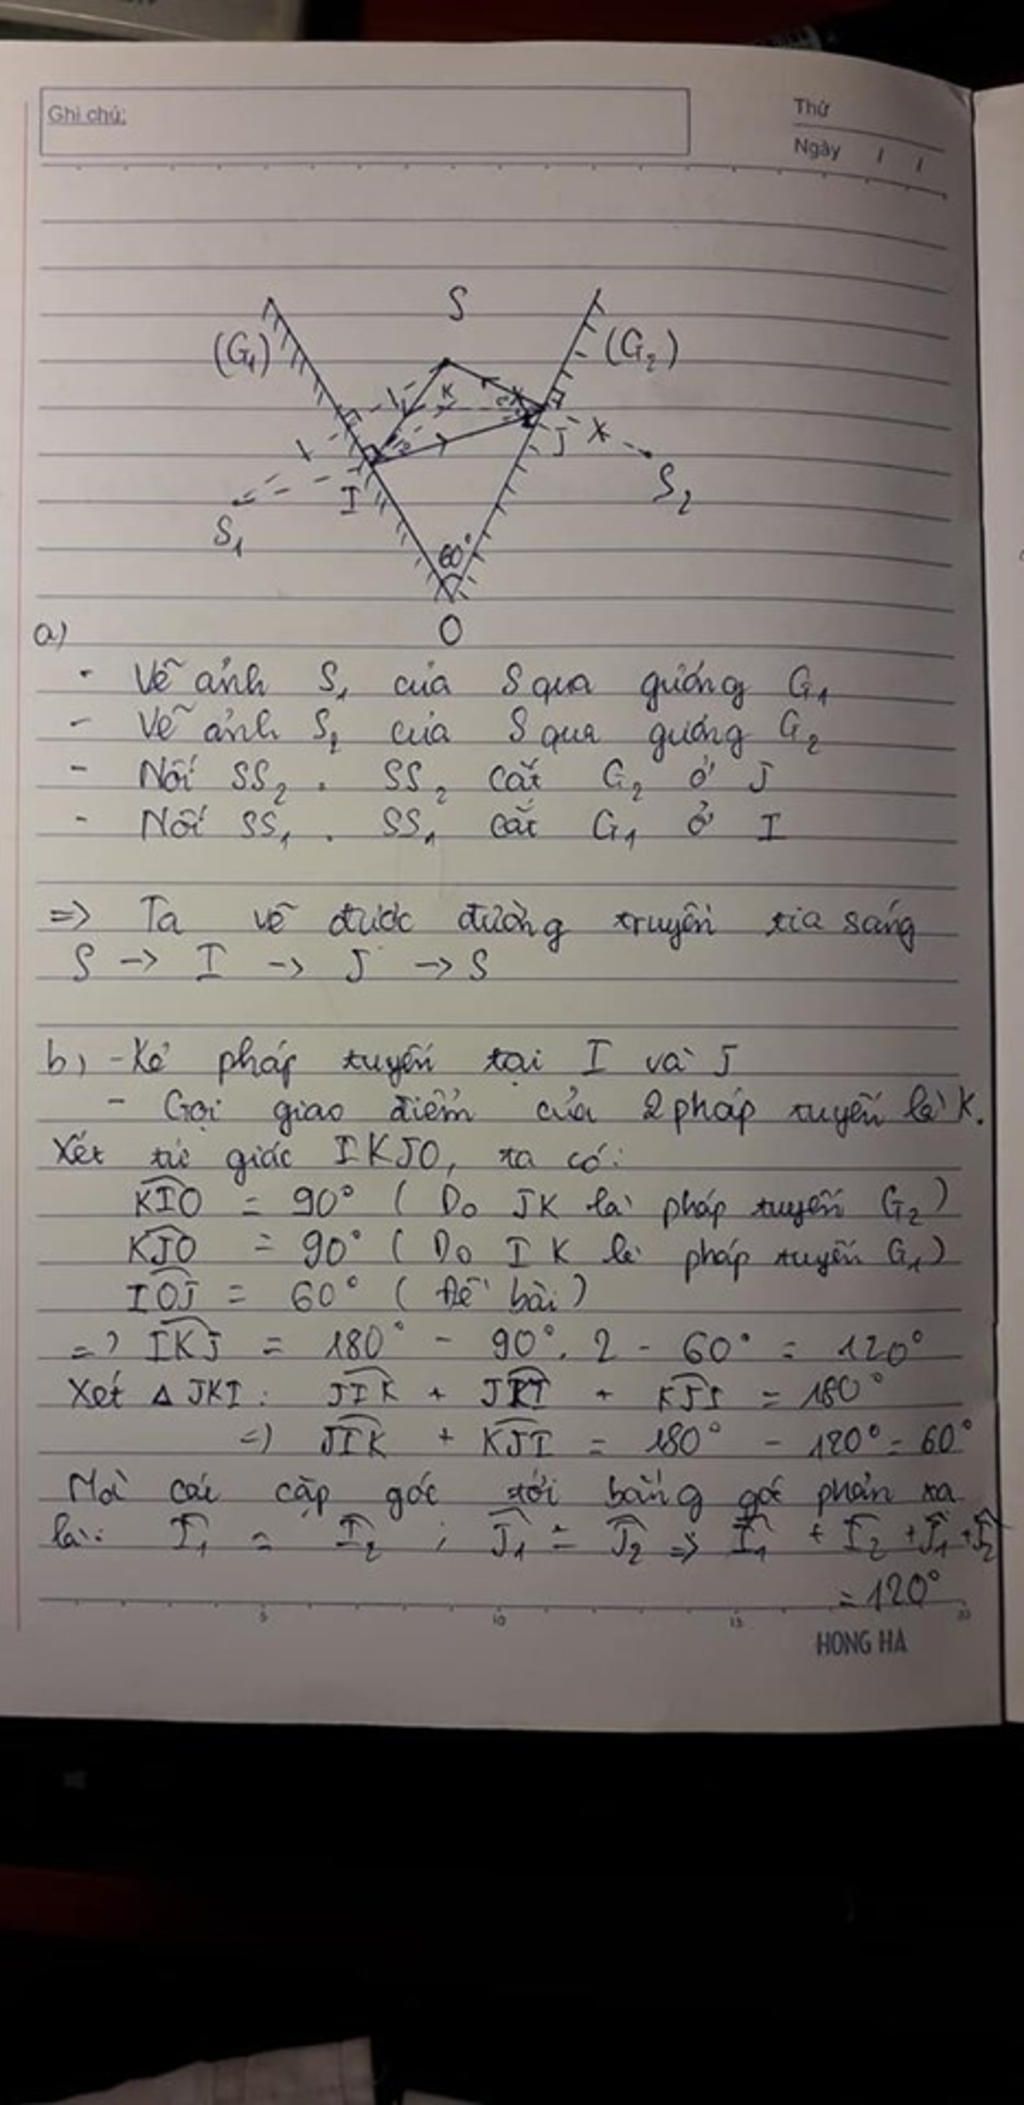 Ghi chú:
Thứ
Ngày / /
S
(G₁)
(G₂)
K
J
I
S₁
S₂
60°
O
a)
- Vẽ ảnh S₁ của S qua gương G₁
- Vẽ ảnh S₂ của S qua gương G₂
- Nối SS₂. SS₂ cắt G₂ ở J
- Nối SS₁. SS₁ cắt G₁ ở I
=> Ta vẽ được đường truyền tia sáng
S -> I -> J -> S
b) - Kẻ pháp tuyến tại I và J
- Gọi giao điểm của 2 pháp tuyến là K.
Xét tứ giác IKJO, ta có:
KIO = 90° ( Do JK là pháp tuyến G₂)
KJO = 90° ( Do IK là pháp tuyến G₁)
IOJ = 60° ( Đề bài)
=> IKJ = 180° - 90°. 2 - 60° = 120°
Xét Δ JKI: JIK + JKI + KJI = 180°
=> JIK + KJI = 180° - 120° = 60°
Mà các cặp góc tới bằng góc phản xạ
là: I₁ = I₂ ; J₁ = J₂ => I₁ + I₂ + J₁ + J₂
= 120°
5 10 15 20
HONG HA